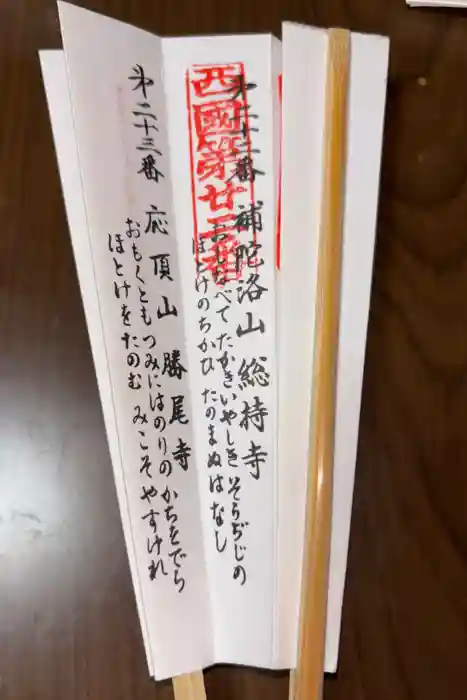 西國第廿二番
第二十二番 補陀洛山 総持寺
おしなべて たかきいやしき そうぢじの
ほとけのちかひ たのまぬはなし
第二十三番 応頂山 勝尾寺
おもくとも つみにはのりの かちをでら
ほとけをたのむ みこそやすけれ